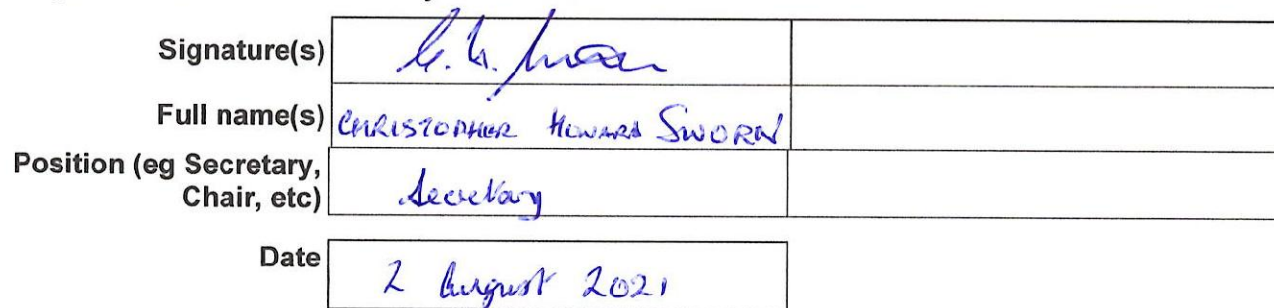 Signature(s)
Full name(s) CHRISTOPHER HOWARD SWORN
Position (eg Secretary,
Chair, etc) Secretary
Date 2 August 2021